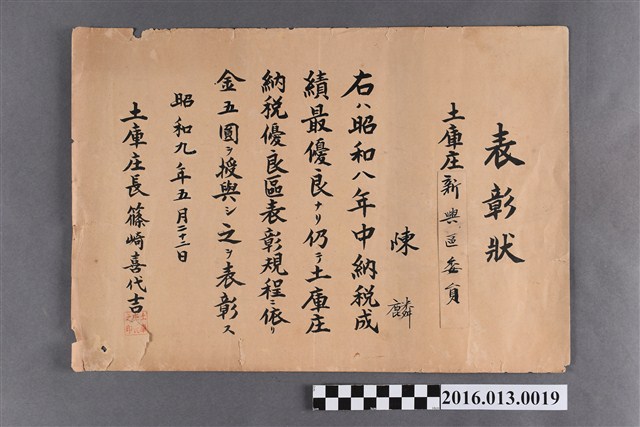 表彰狀
土庫庄新興區委員
陳麟
右ハ昭和八年中納税成
績最優良ナリ仍テ土庫庄
納税優良區表彰規程ニ依リ
金五圓ヲ授與シ之ヲ表彰ス
昭和九年五月二十二日
土庫庄長篠崎喜代吉
2016.013.0019